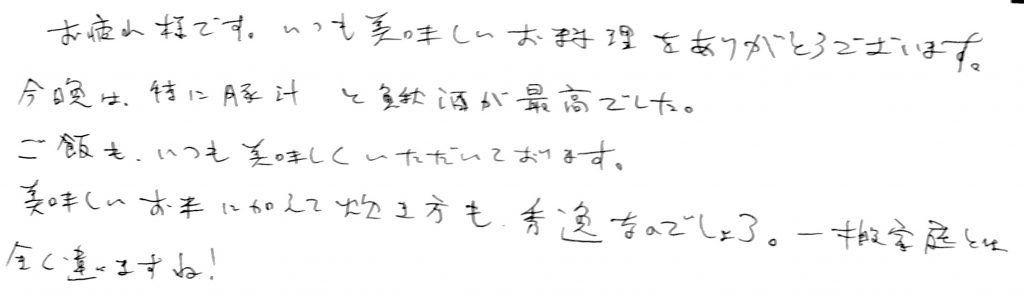 お疲れ様です。いつも美味しいお料理をありがとうございます。
今晩は、特に豚汁と鮭が最高でした。
ご飯も、いつも美味しくいただいております。
美味しいお米に加えて炊き方も、秀逸なのでしょう。一般家庭とは
全く違いますね!